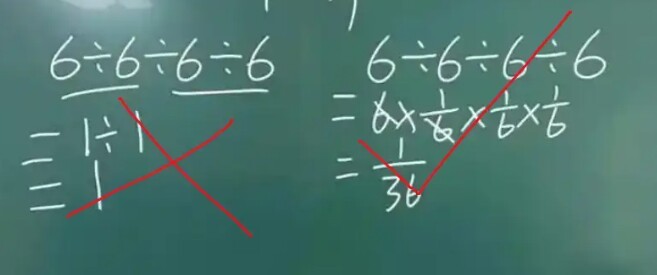 6÷6÷6÷6
=1÷1
=1
6÷6÷6÷6
=6×1/6×1/6×1/6
=1/36